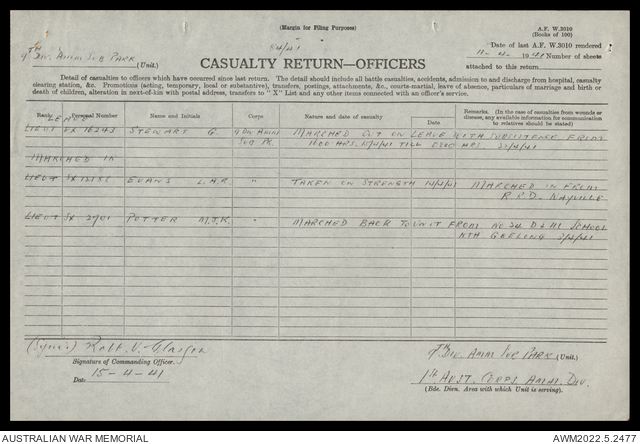 (Margin for Filing Purposes)
A.F. W.2010
(Books of 100)
84/41
9TH DIV. AMM SUB PARK (Unit.)
Date of last A.F. W.2010 rendered
11-4-1941 Number of sheets
attached to this return
CASUALTY RETURN—OFFICERS
Detail of casualties to officers which have occurred since last return. The detail should include all battle casualties, accidents, admission to and discharge from hospital, casualty
clearing station, &c. Promotions (acting, temporary, local or substantive), transfers, postings, attachments, &c., courts-martial, leave of absence, particulars of marriage and birth or
death of children, alteration in next-of-kin with postal address, transfers to "X" List and any other items connected with an officer's service.
Rank Personal Number Name and Initials Corps Nature and date of casualty Date Remarks. (In the case of casualties from wounds or disease, any available information for communication to relatives should be stated)
LEAVE
LIEUT VX 16243 STEWART G. 9 DIV AMM MARCHED OUT ON LEAVE WITH SUBSISTENCE FROM
SUB PK. 1600 HRS. 15/4/41 TILL 0700 HRS 22/4/41
MARCHED IN
LIEUT SX EVANS L.H.R. " TAKEN ON STRENGTH 14/4/41 MARCHED IN FROM
R.R.D. WAYVILLE
LIEUT SX POTTER M.J.K. " MARCHED BACK TO UNIT FROM NO 24 D & M SCHOOL
NTH GEELONG
(Signed) Robt. V. Glasgow
Signature of Commanding Officer.
Date 15-4-41
9TH DIV. AMM SUB PARK (Unit.)
1ST AUST. CORPS AMM. DIV.
(Bde. Divn. Area with which Unit is serving).
AUSTRALIAN WAR MEMORIAL
AWM2022.5.2477